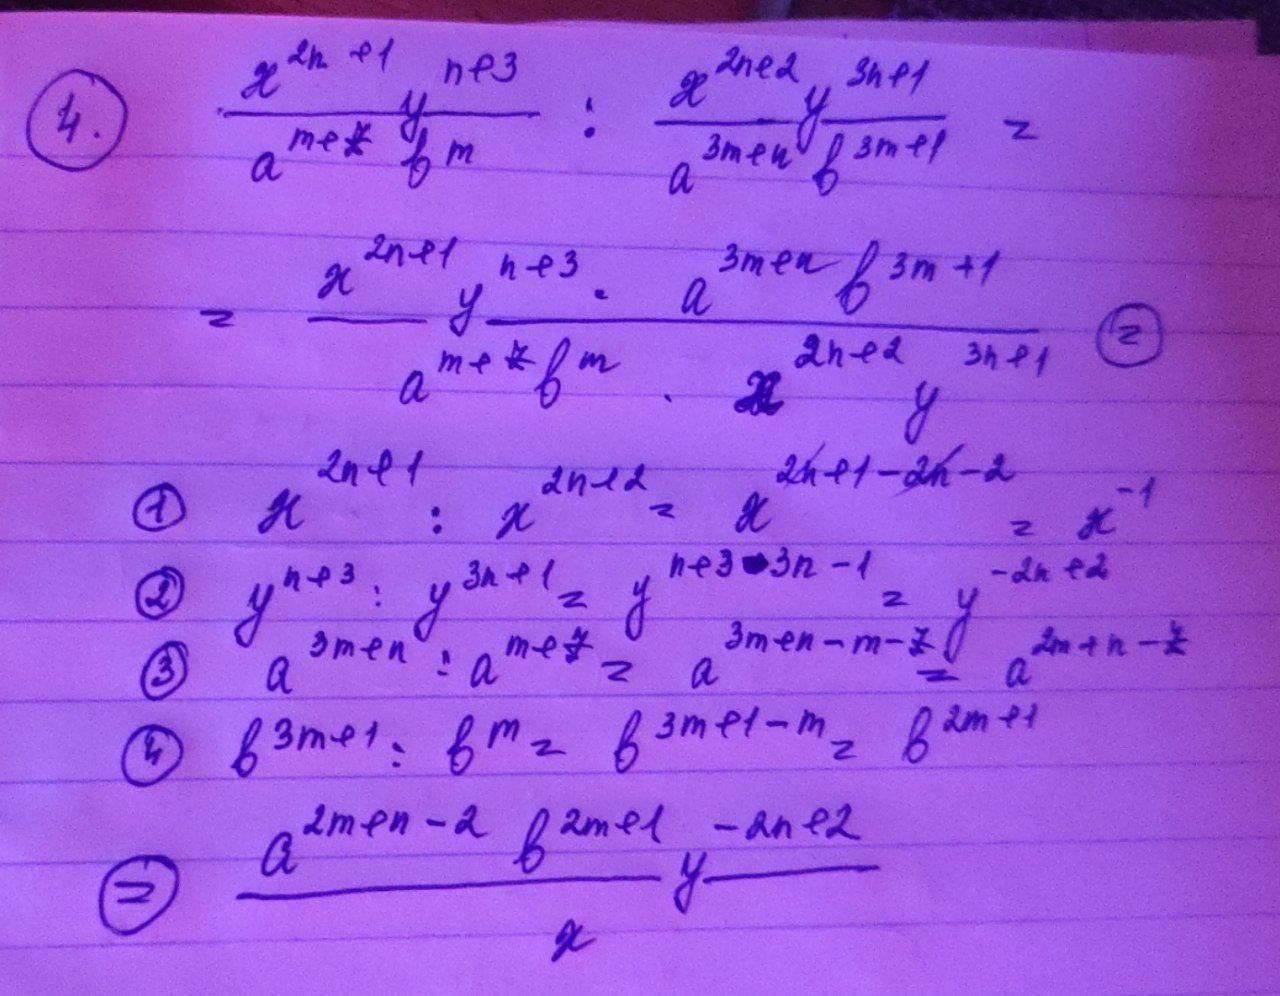 4. x^{2n+1} y^{n+3} / a^{m+2} b^{m} : x^{2n+2} y^{3n+1} / a^{3m+n} b^{3m+1} =
= x^{2n+1} y^{n+3} · a^{3m+n} b^{3m+1} / a^{m+2} b^{m} · x^{2n+2} y^{3n+1} =
1 x^{2n+1} : x^{2n+2} = x^{2n+1-2n-2} = x^{-1}
2 y^{n+3} : y^{3n+1} = y^{n+3-3n-1} = y^{-2n+2}
3 a^{3m+n} : a^{m+2} = a^{3m+n-m-2} = a^{2m+n-2}
4 b^{3m+1} : b^{m} = b^{3m+1-m} = b^{2m+1}
= a^{2m+n-2} b^{2m+1} y^{-2n+2} / x